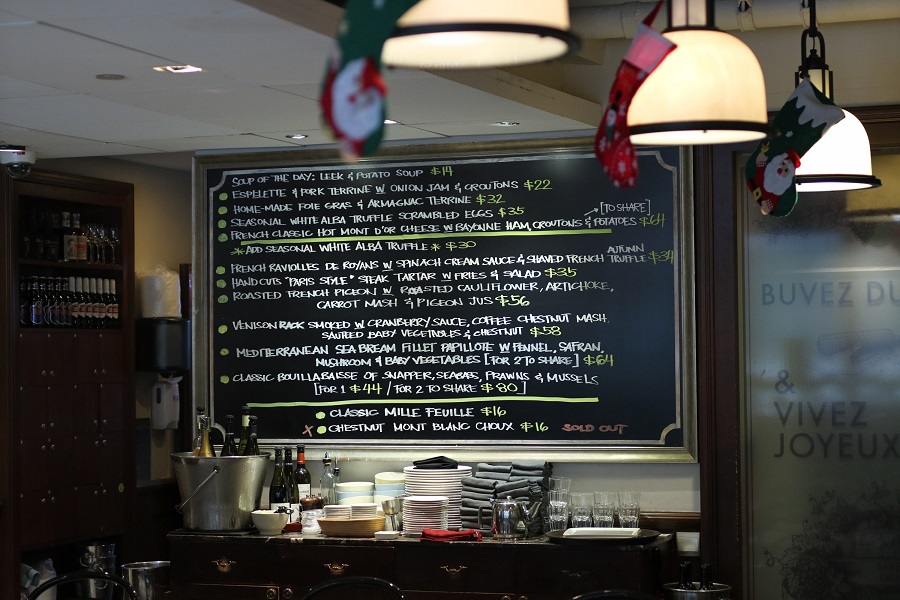 SOUP OF THE DAY; LEEK & POTATO SOUP $14
ESPELETTE & PORK TERRINE W ONION JAM & CROUTONS $22
HOME-MADE FOIE GRAS & ARMAGNAC TERRINE $32
SEASONAL WHITE ALBA TRUFFLE SCRAMBLED EGGS $35
[TO SHARE]
FRENCH CLASSIC HOT MONT D'OR CHEESE W BAYONNE HAM, CROUTONS & POTATOES $64
*ADD SEASONAL WHITE ALBA TRUFFLE* $30
AUTUMN
FRENCH RAVIOLLES DE ROYANS W SPINACH CREAM SAUCE & SHAVED FRENCH TRUFFLE $34
HAND CUTS "PARIS STYLE" STEAK TARTAR W FRIES & SALAD $35
ROASTED FRENCH PIGEON W ROASTED CAULIFLOWER, ARTICHOKE,
CARROT MASH & PIGEON JUS $56
VENISON RACK SMOKED W CRANBERRY SAUCE, COFFEE CHESTNUT MASH,
SAUTEED BABY VEGETABLES & CHESTNUT $58
MEDITERRANEAN SEA BREAM FILLET PAPILLOTE W FENNEL, SAFRAN,
MUSHROOM & BABY VEGETABLES [FOR 2 TO SHARE] $64
CLASSIC BOUILLABAISSE OF SNAPPER, SEABASS, PRAWNS & MUSSELS
[FOR 1 $44 / FOR 2 TO SHARE $80]
CLASSIC MILLE FEUILLE $16
X CHESTNUT MONT BLANC CHOUX $16 SOLD OUT
BUVEZ DU
&
VIVEZ
JOYEUX